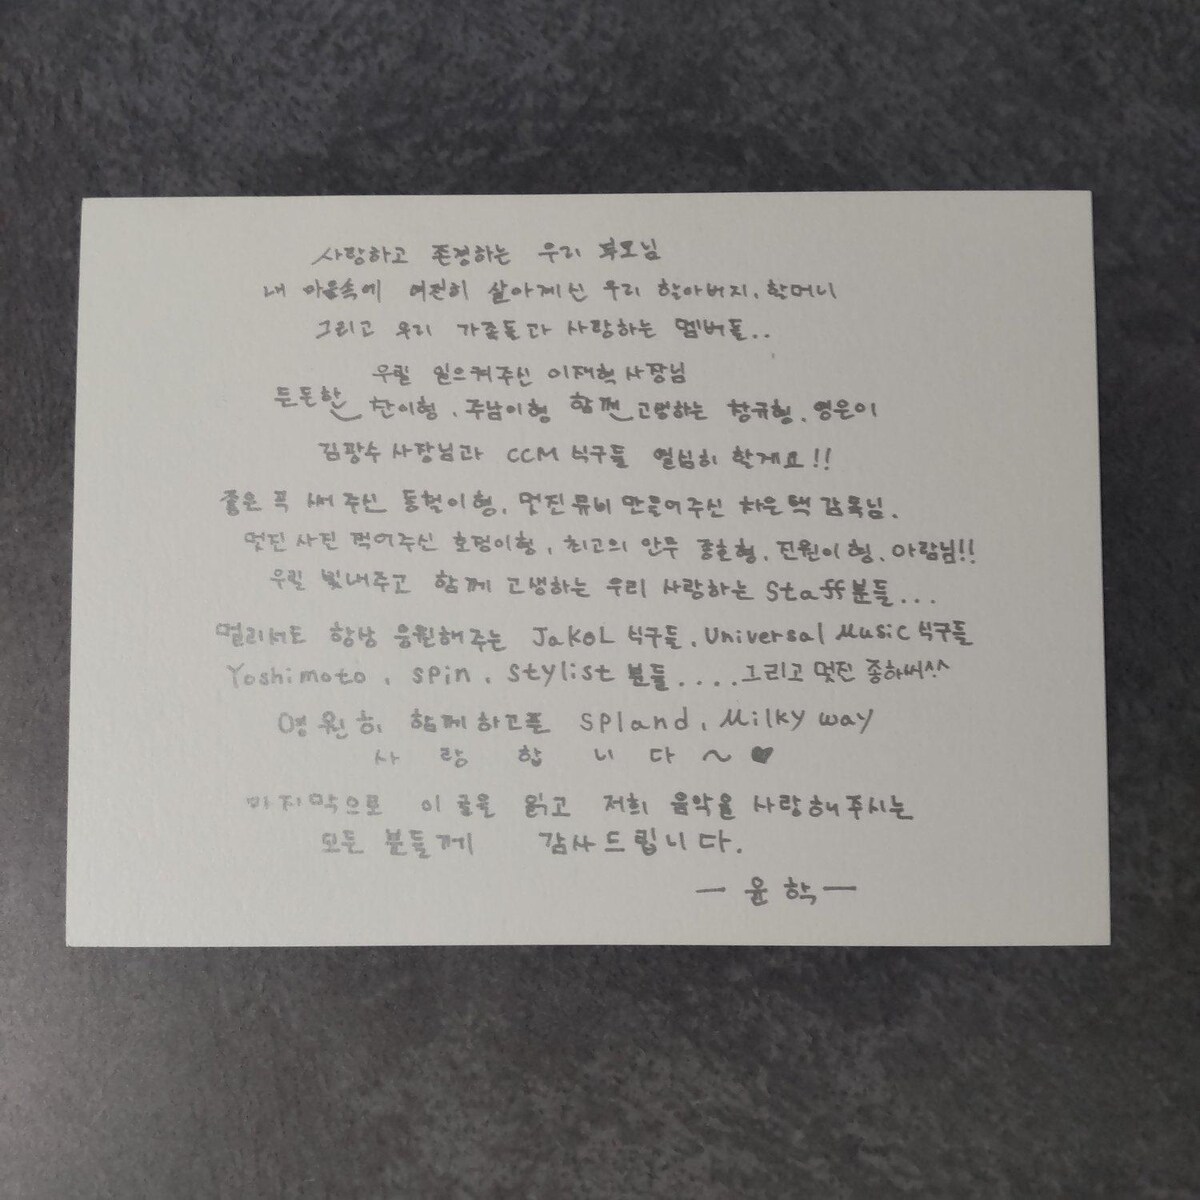 사랑하고 존경하는 우리 부모님
내 마음속에 여전히 살아계신 우리 할아버지, 할머니
그리고 우리 가족들과 사랑하는 멤버들..
우릴 일으켜주신 이재혁 사장님
든든한 찬이형, 주남이형 함께 고생하는 창규형, 영은이
김광수 사장님과 CCM 식구들 열심히 할게요!!
좋은 곡 써 주신 동철이형, 멋진 뮤비 만들어주신 차은택 감독님.
멋진 사진 찍어주신 호정이형, 최고의 안무 종훈형, 진원이형, 아람님!!
우릴 빛내주고 함께 고생하는 우리 사랑하는 Staff분들...
멀리서도 항상 응원해주는 JaKoL 식구들, Universal Music 식구들
Yoshimoto, Spin, Stylist 분들....그리고 멋진 종하씨^^
영원히 함께하고픈 SPland, Milky way
사 랑 합 니 다 ~ ♥
마지막으로 이 글을 읽고 저희 음악을 사랑해주시는
모든 분들께 감사드립니다.
— 윤학 —